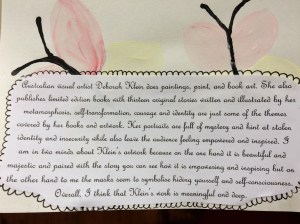 Australian visual artist Deborah Klein does paintings, print, and book art. She also
publishes limited edition books with thirteen original stories written and illustrated by her
metamorphosis, self-transformation, courage and identity are just some of the themes
covered by her books and artwork. Her portraits are full of mystery and hint at stolen
identity and insecurity while also leave the audience feeling empowered and inspired. I
am in two minds about Klein's artwork because on the one hand it is beautiful and
majestic and paired with the story you can see how it is empowering and inspiring but on
the other hand to me the masks seem to symbolise hiding yourself and self-consciousness.
Overall, I think that Klein's work is meaningful and deep.